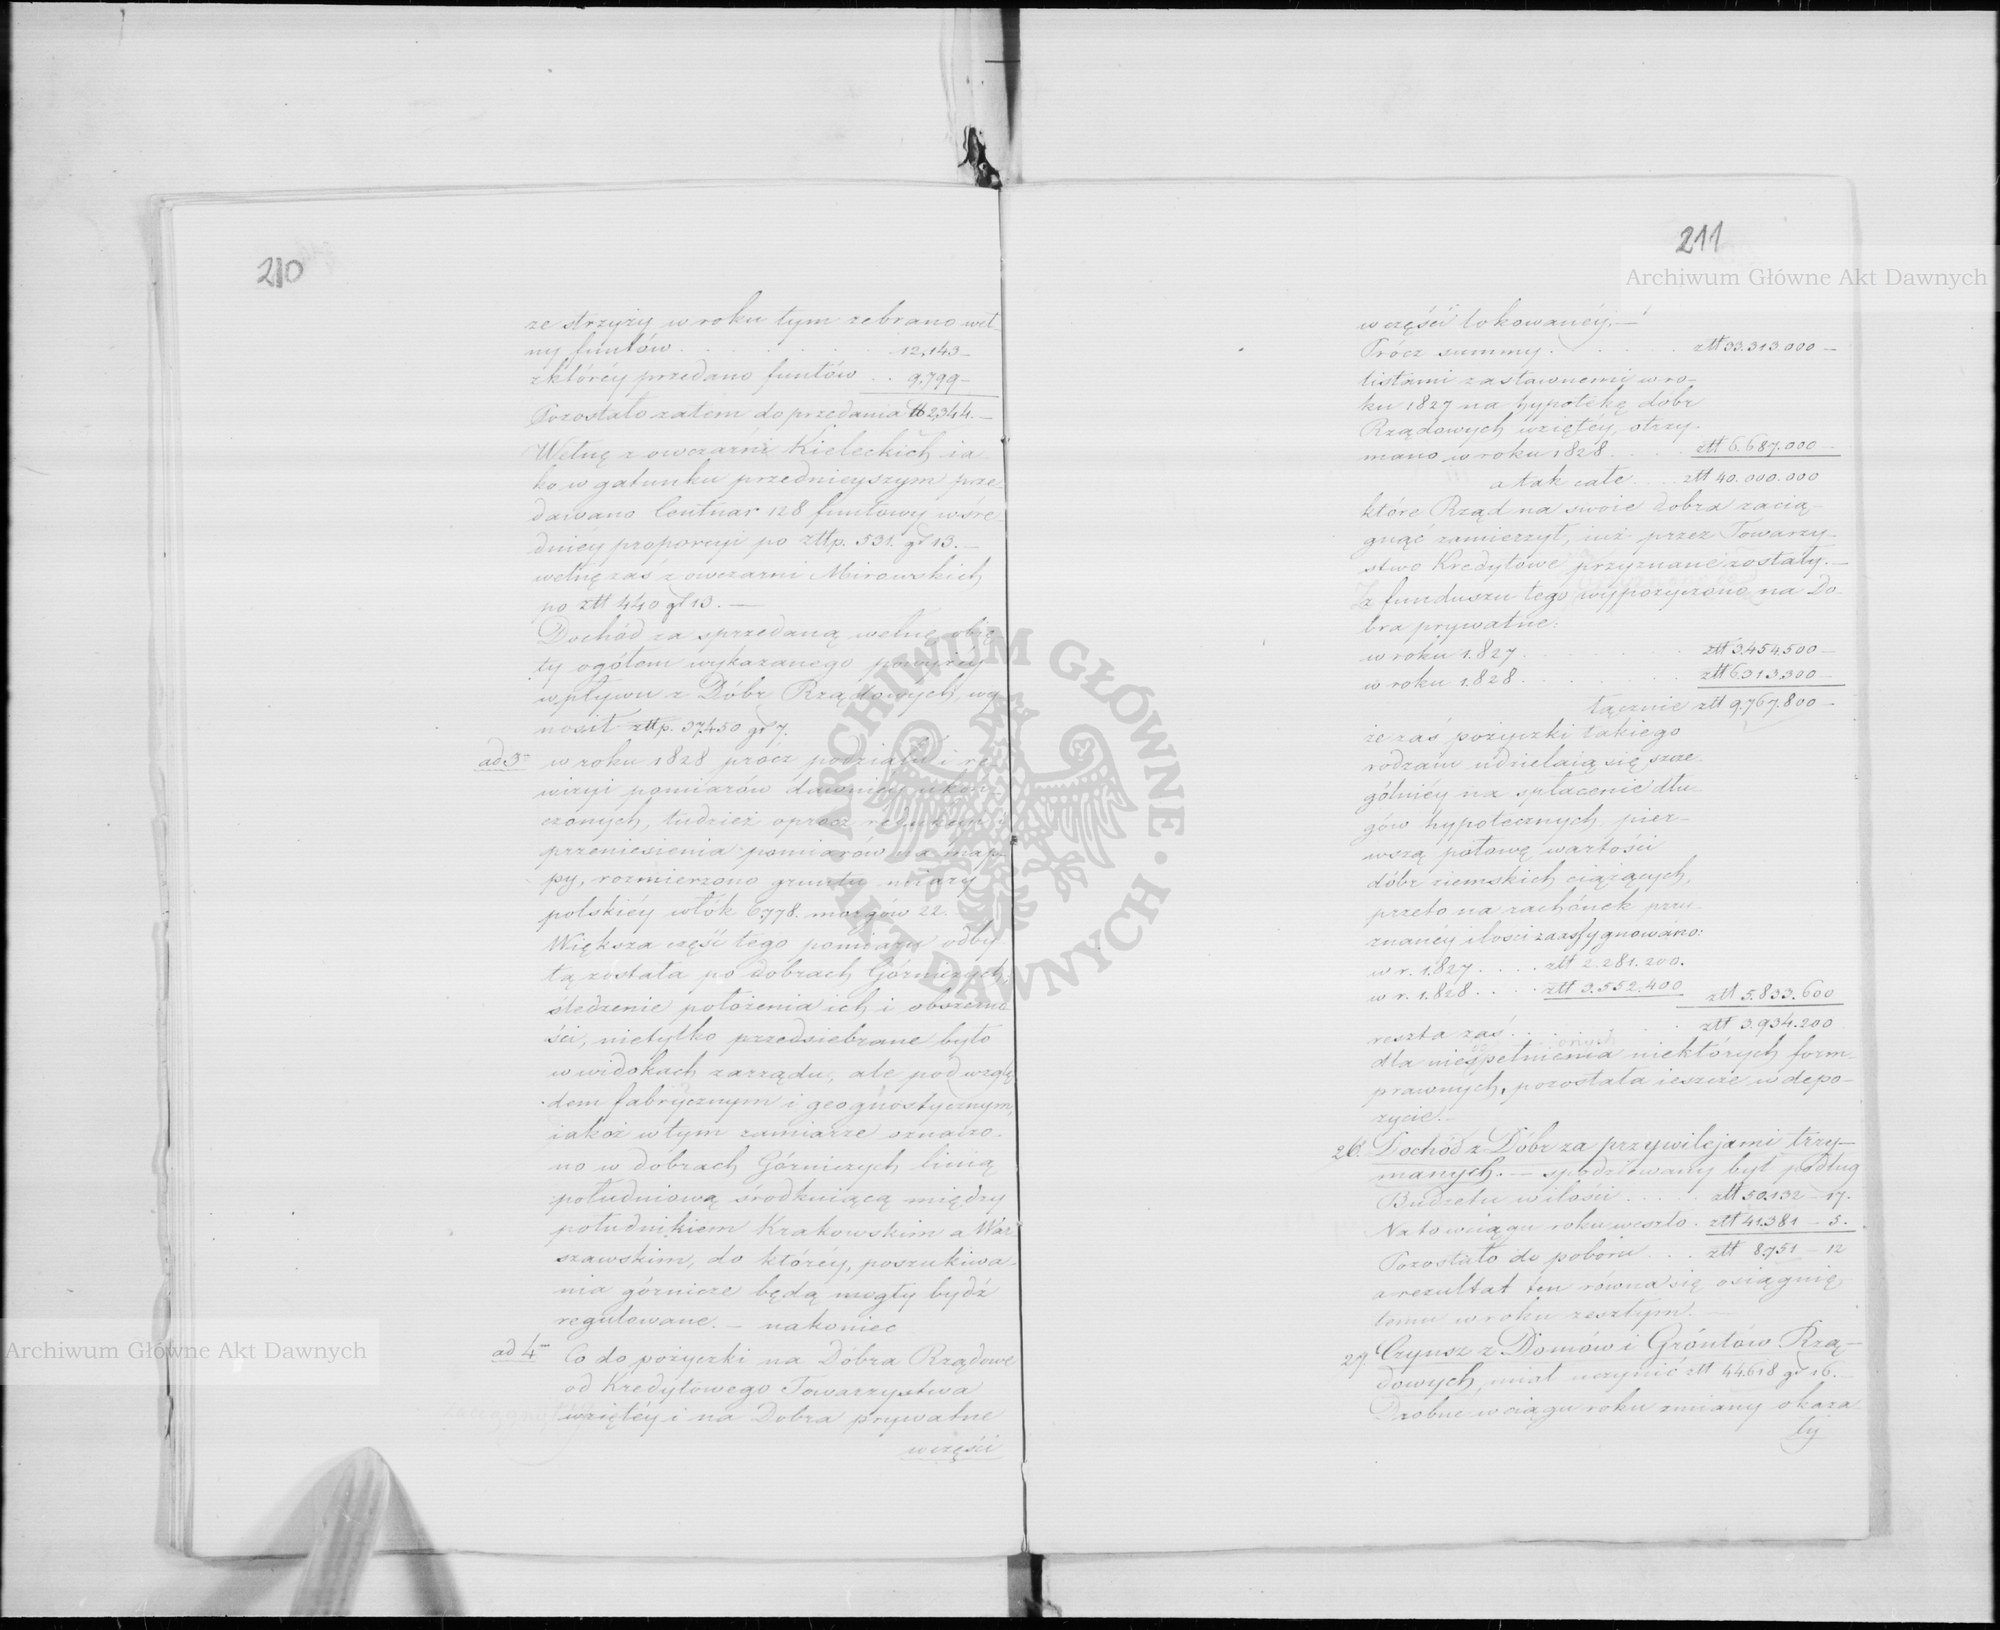 210
ze strzyży w roku tym zebrano weł-
ny funtów . . . . . . 12,143 –
z któréy przedano funtów . . 9,799 –
Pozostało zatém do przedania ℔ 2,344. –
Wełnę z owczarni Kieleckich ia-
ko w gatunku przednieyszym prze-
dawano Centnar 128 funtowy w śre-
dniéy proporcyi po złtp. 531. gr 13. –
wełnę zaś z owczarni Mirowskich
po złt 440 gr 13. –
Dochód za sprzedaną wełnę obję-
ty ogółem wykazanego powyżéy
wpływu z Dóbr Rządowych, wy-
nosił złtp. 37450 gr 7.
ad 3º w roku 1828 prócz podziału i re-
wizyi pomiarów dawniéy ukoń-
czonych, tudzież oprócz redukcyi i
przeniesienia pomiarów na map-
py, rozmierzono gruntu miary
polskiéy włók 6778. morgów 22.
Większa część tego pomiaru odby-
tą została po dobrach Górniczych,
śledzenie położenia ich i obszerno-
ści, nietylko przedsiebrane było
w widokach zarządu, ale pod wzglę-
dem fabrycznym i geognostycznym,
iakoż w tym zamiarze oznaczo-
no w dobrach Górniczych linią
południową środkuiącą między
południkiem Krakowskim a War-
szawskim, do któréy, poszukiwa-
nia górnicze będą mogły bydź
regulowane. – nakoniec
ad 4º Co do pożyczki na Dobra Rządowe
od Kredytowego Towarzystwa
wziętéy i na Dobra prywatne
w części
211
w części lokowanéy. –
Prócz summy . . . . złt 33.313.000 –
listami zastawnemi w ro-
ku 1827 na hypotekę dobr
Rządowych wziętéy, otrzy-
mano w roku 1828 . . . . złt 6.687.000 –
a tak całe . . . złt 40.000.000
które Rząd na swoie dobra zacią-
gnąć zamierzył, iuż przez Towarzy-
stwo Kredytowe przyznane zostały. –
Z funduszu tego wypożyczono na Do-
bra prywatne:
w roku 1827 . . . . . . złt 3.454.500 –
w roku 1828 . . . . . . złt 6.313.300 –
łącznie złt 9.767.800 –
że zaś pożyczki takiego
rodzaiu udzielaią się szcze-
gólniéy na spłacenie dłu-
gów hypotecznych pier-
wszą połowę wartości
dóbr ziemskich ciążących,
przeto na rachunek przy-
znanéy ilości zaassygnowano:
w r. 1827 . . . . złt 2.281.200.
w r. 1828 . . . . złt 3.552.400 złt 5.833.600
reszta zaś . . . . . . złt 3.934.200
dla niespełnienia niektórych form
prawnych, pozostała ieszcze w depo-
zycie. –
26. Dochód z Dóbr za przywilejami trzy-
manych. – spodziewany był podług
Budżetu w ilości . . . . złt 50.132 – 17.
Na to w ciągu roku weszło . złt 41.381 – 5.
Pozostało do poboru . . . złt 8.751 – 12
a rezultat ten równa się osiągnię-
temu w roku zeszłym. –
27. Czynsz z Domów i Gróntów Rzą-
dowych, miał uczynić złt 44618 gr 16. –
Drobne w ciągu roku zmiany okaza-
ły
Archiwum Główne Akt Dawnych
Archiwum Główne Akt Dawnych
ARCHIWUM GŁÓWNE AKT DAWNYCH